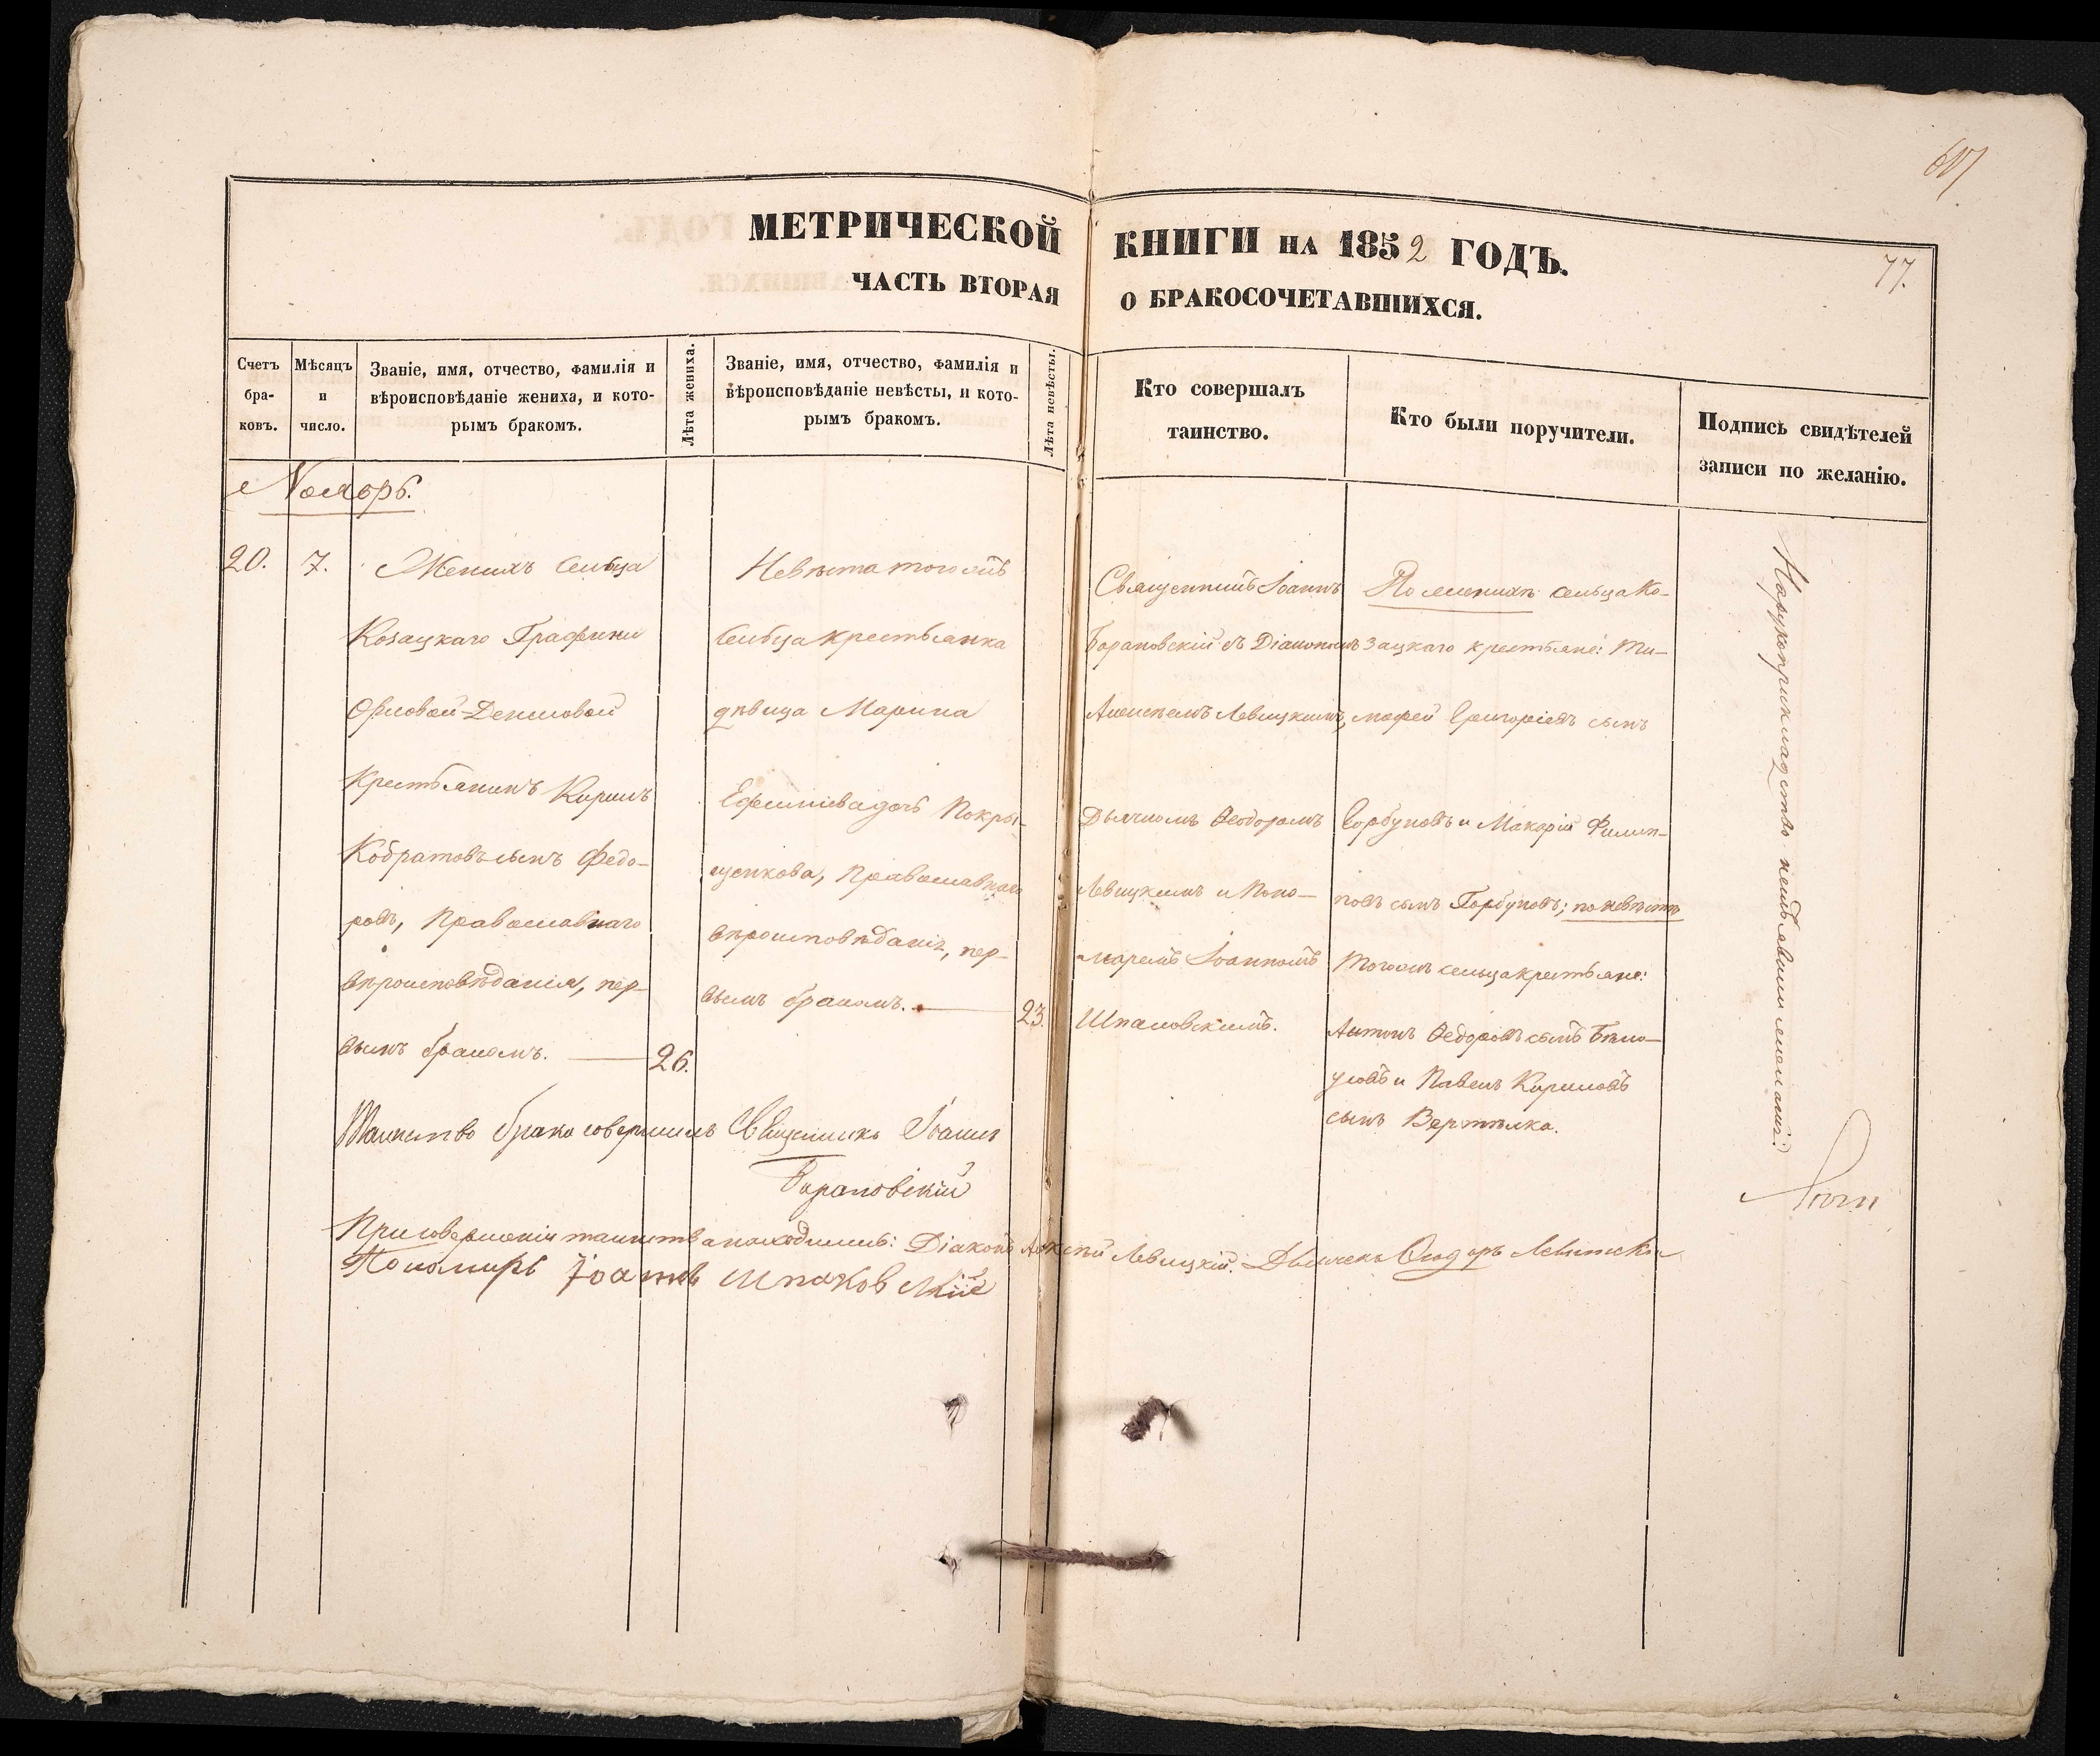 607
МЕТРИЧЕСКОЙ КНИГИ НА 1852 ГОДЪ.
77.
ЧАСТЬ ВТОРАЯ О БРАКОСОЧЕТАВШИХСЯ.
Счетъ бра-ковъ.
Мѣсяцъ и число.
Званіе, имя, отчество, фамилія и
вѣроисповѣданіе жениха, и кото-
рымъ бракомъ.
Лѣта жениха.
Званіе, имя, отчество, фамилія и
вѣроисповѣданіе невѣсты, и кото-
рымъ бракомъ.
Лѣта невѣсты.
Кто совершалъ
таинство.
Кто были поручители.
Подпись свидѣтелей
записи по желанію.
Ноябрь.
20.
7.
Женихъ Сельца
Козацкаго Графини
Орловой-Денисовой
крестьянинъ Кирилъ
сынъ Федо-
ровъ, Православнаго
вѣроисповѣданія, пер-
вымъ бракомъ.
26.
Невѣста тогожъ
Сельца крестьянка
дѣвица Марина
дочь Покры-
щенкова, Православнаго
вѣроисповѣданія, пер-
вымъ бракомъ.
23.
Священникъ Іоаннъ
Барановскій съ Діакономъ
Алексѣемъ Левицкимъ,
Дьячкомъ Ѳеодоромъ
Левицкимъ и Поно-
маремъ Іоанномъ
Шпаковскимъ.
По женихѣ сельца Ко-
зацкаго крестьяне: Ти-
мофей Григоріевъ сынъ
Горбуновъ и Макарій Филип-
повъ сынъ Горбуновъ; по невѣстѣ
Тогожъ сельца крестьяне:
Антонъ Ѳедоровъ сынъ Бѣло-
усовъ и Павелъ Кириловъ
сынъ
Таинство брака совершилъ Священникъ Іоаннъ
Барановскій
При совершеніи таинства находились: Діаконъ Алексѣй Левицкій. Дьячекъ Ѳеодоръ Левитскій
Пономарь Іоаннъ Шпаковскій